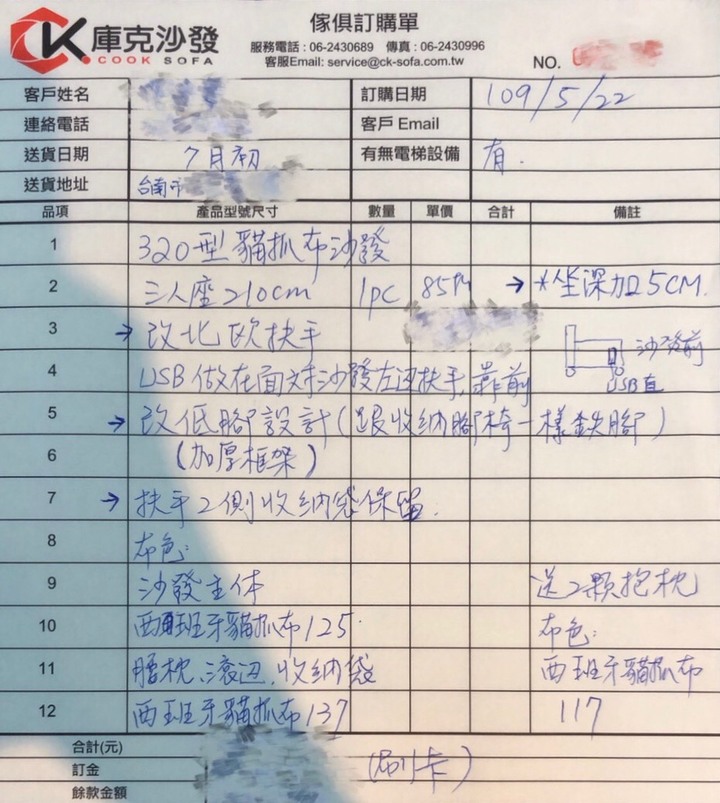 CK 庫克沙發
COOK SOFA
傢俱訂購單
服務電話：06-2430689 傳真：06-2430996
客服Email: service@ck-sofa.com.tw
NO.
客戶姓名
訂購日期 109/5/22
連絡電話
客戶 Email
送貨日期 7月初
有無電梯設備 有.
送貨地址 台南市
品項 產品型號尺寸 數量 單價 合計 備註
1 320型貓抓布沙發
2 三人座210cm 1pc 85 → *坐深加5CM.
3 → 改北歐扶手
沙發前
4 USB做在面對沙發左边扶手,靠前
USB直
5 → 改低腳設計(跟收納腳椅一樣鉄腳)
6 (加厚框架)
7 → 扶手2側收納袋保留.
8 布色:
9 沙發主体 送2顆抱枕
10 西班牙貓抓布125 布色:
11 腰枕、滾边、收納袋 西班牙貓抓布
12 西班牙貓抓布137 117
合計(元)
訂金 (刷卡)
餘款金額